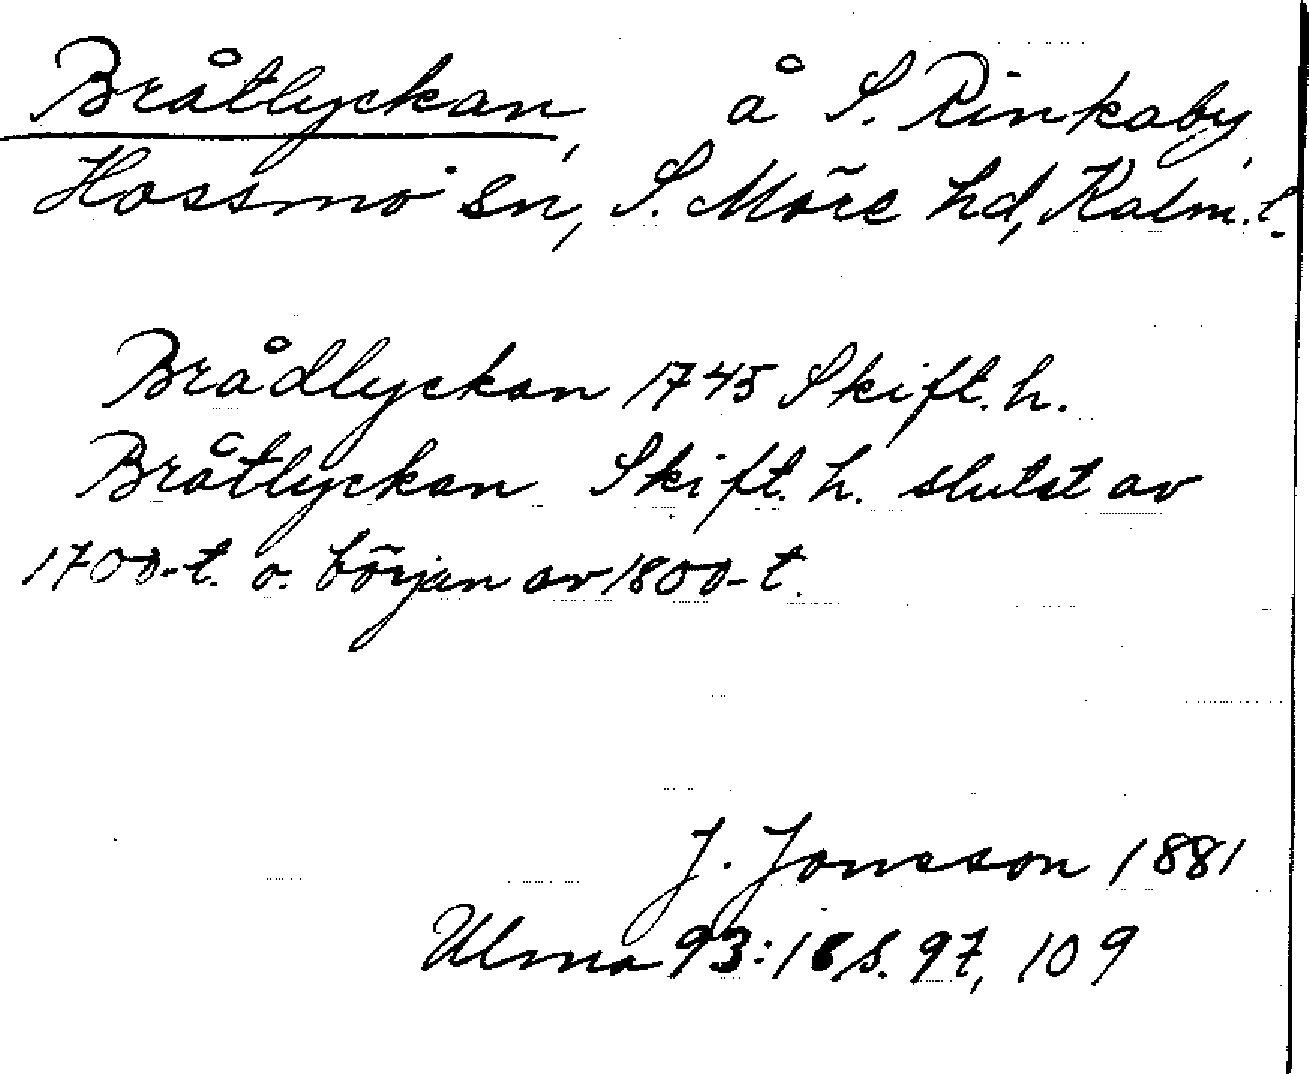 Bråtlyckan, å S. Rinkaby,
Hossmo sn, S. Möre hd, Kalm. l.
Brådlyckan 1745 Skift. h.
Bråtlyckan Skift. h. slutet av
1700-t. o. början av 1800-t.
J. Jonsson 1881
Ulma 93:18 s. 97, 109